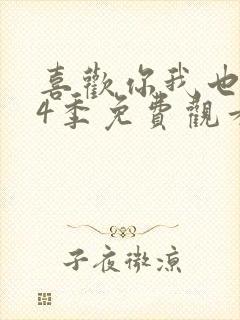 喜歡你我也
4季免費觀
子夜微涼